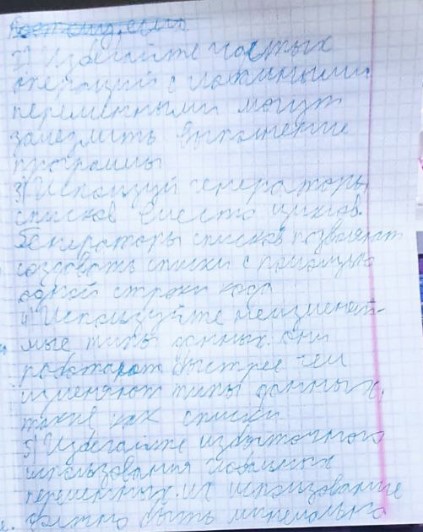 2) Избегайте частых
операций с
переменными могут
замедлить выполнение
программы
3) Используй генераторы
списков вместо циклов
Генераторы списков позволяют
создовать списки с помощью
одной строки кода
4) Используйте неизменяй-
мые типы данных. они
работают быстрее чем
изменяют типы данных,
такие как списки
5) Избегайте избыточного
использования
переменных. их использование
должно быть минимально